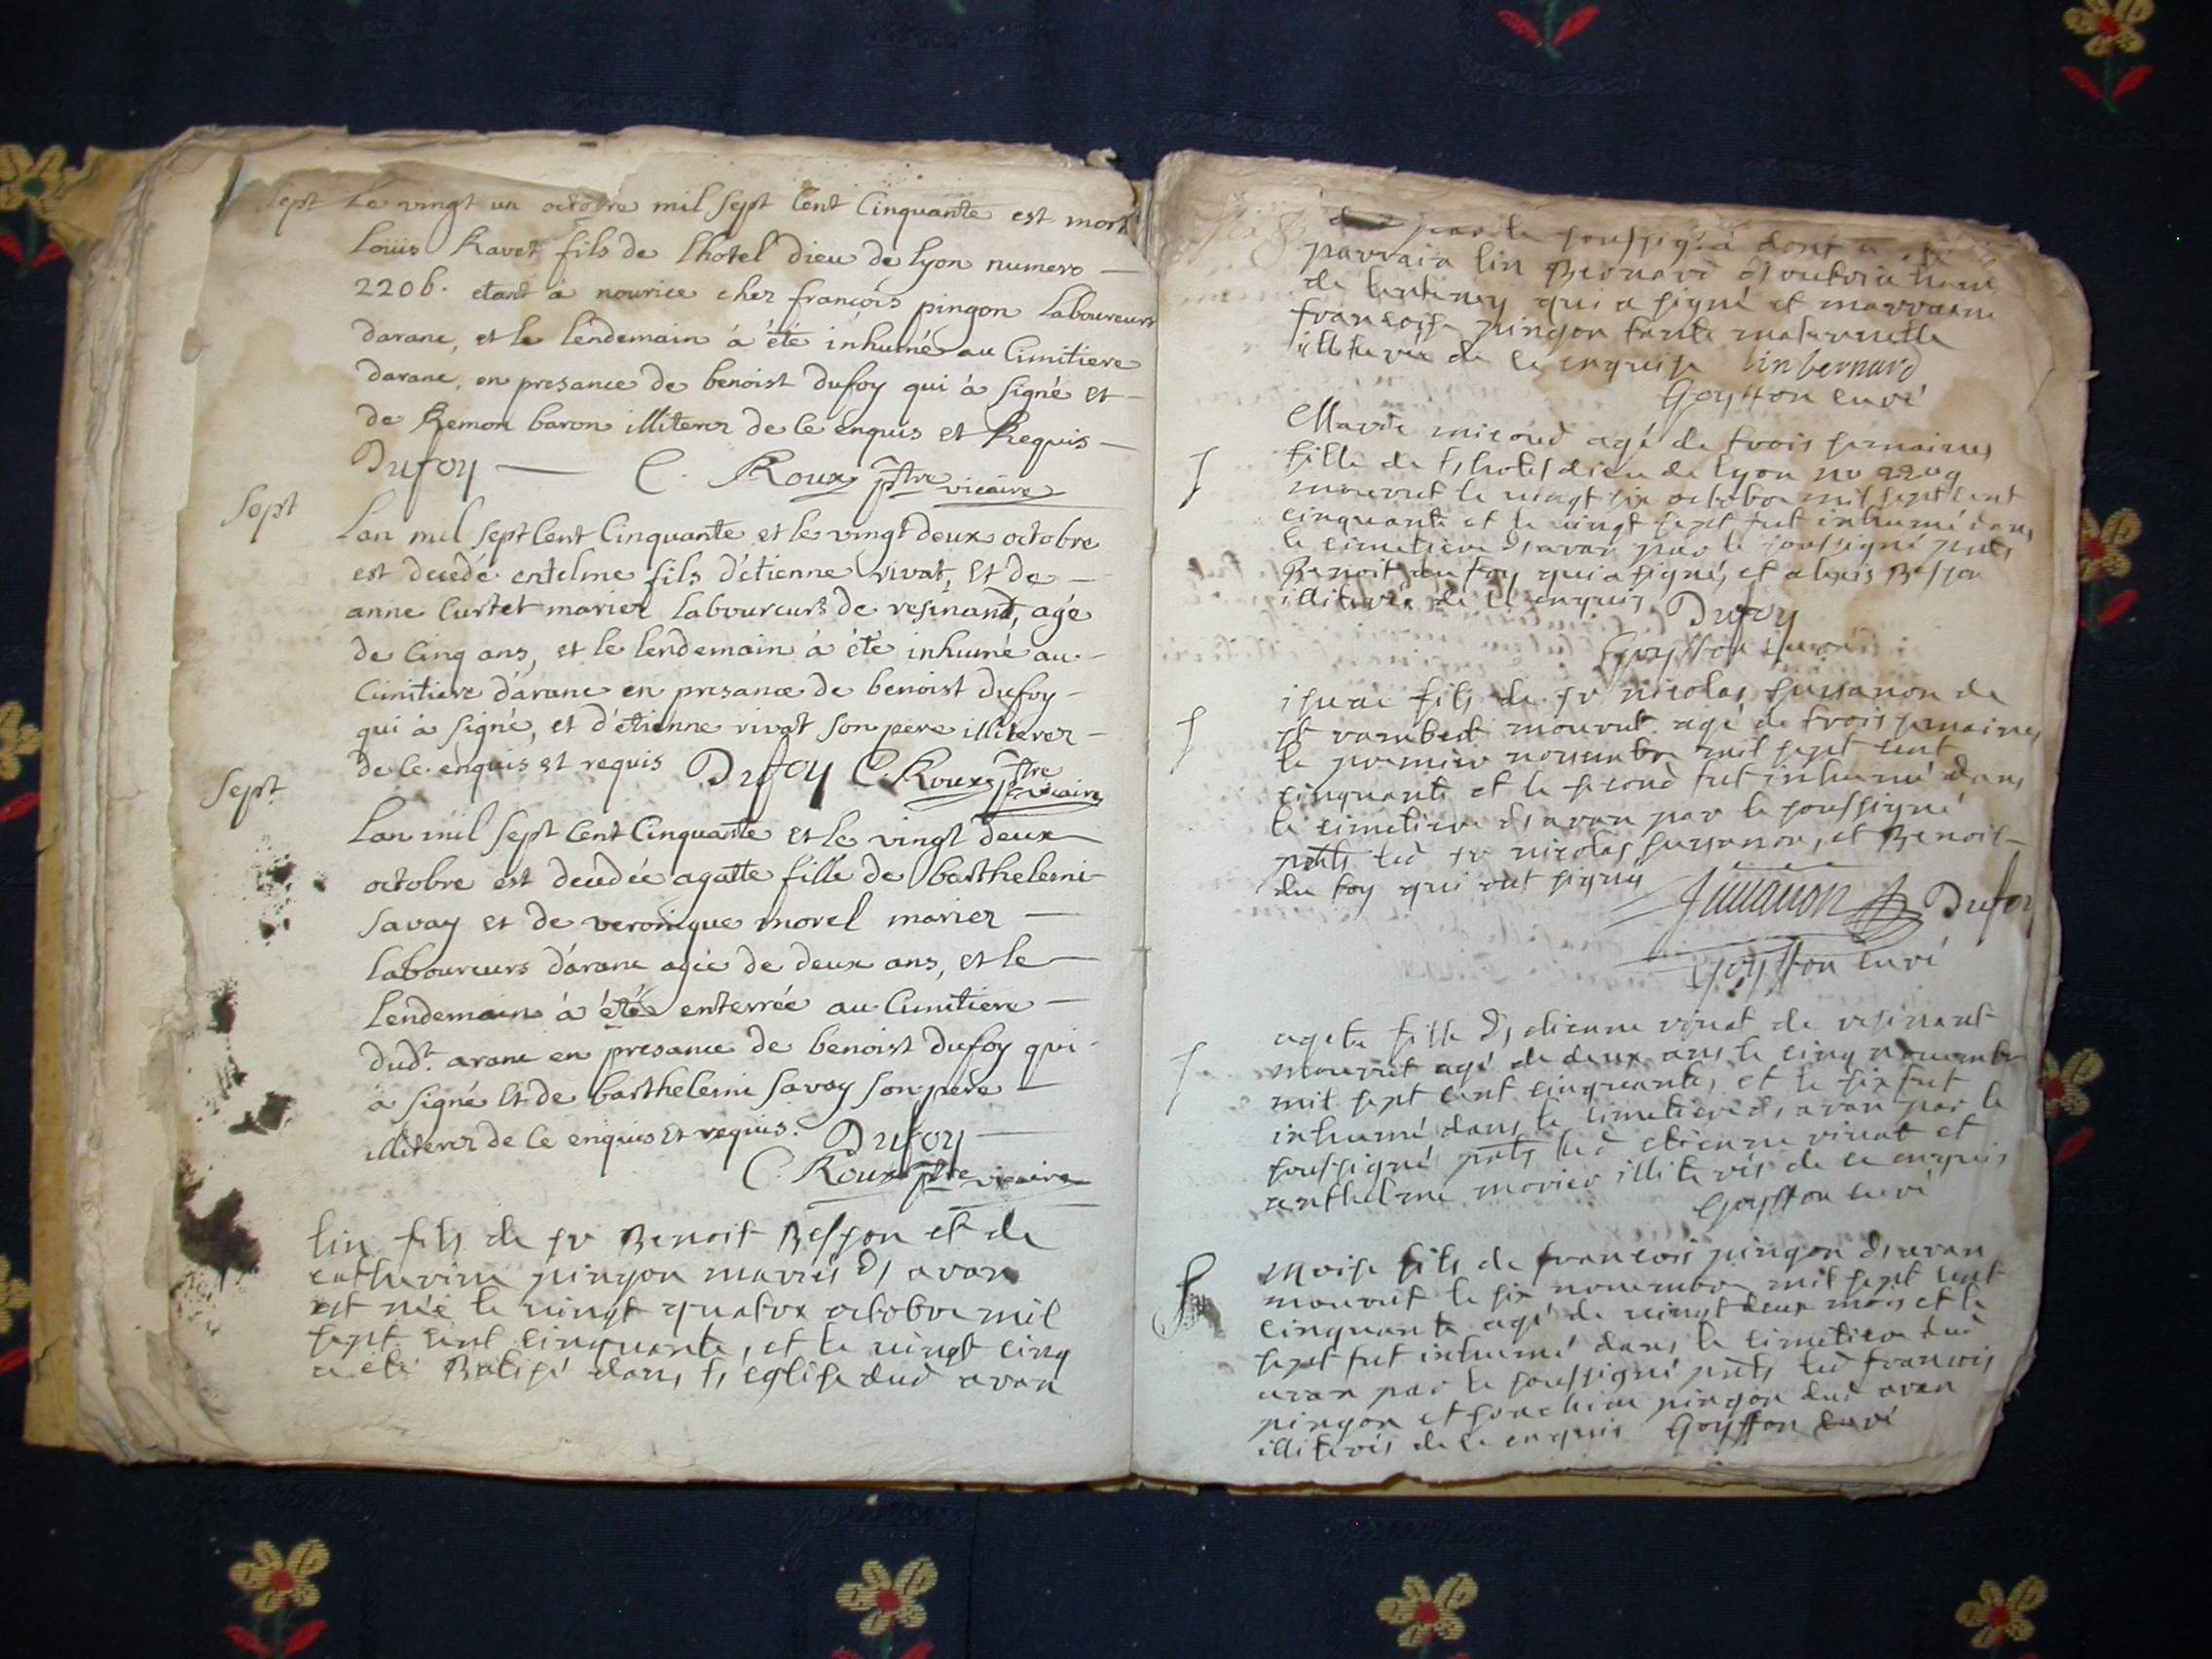 Sept
Le vingt un octobre mil sept Cent Cinquante est mort
Louis Ravet fils de lhotel dieu de lyon numero
2206. etant à nourice chez françois pingon Laboureurs
daranc, et le lendemain à été inhumé au Cimitiere
daranc, en presance de benoist dufoy qui à signé et
de Remon baron illiterez de ce enquis et Requis
Dufoy C. Roux ptre vicaire
Sept
Lan mil sept Cent Cinquante et le vingt deux octobre
est decedé entelme fils d'étienne vivat, et de
anne Curtet mariez Laboureurs de resinand, agé
de Cinq ans, et le lendemain à été inhumé au
Cimitiere d'aranc en presance de benoist dufoy
qui à signé, et d'étienne vivat son pere illiterez
de ce enquis et requis Dufoy C. Roux ptre vicaire
Sept.
Lan mil sept Cent Cinquante et le vingt deux
octobre est decedée agatte fille de barthelemi
savay et de veronique morel mariez
laboureurs d'aranc agée de deux ans, et le
lendemain à été enterrée au Cimitiere
dudt. aranc en presance de benoist dufoy qui
à signé et de barthelemi savay son pere
illiterez de ce enquis et requis. Dufoy
C. Roux ptre vicaire
lin fils de sr Benoit Besson et de
catherine pingon mariés d'aran
est née le vingt quatre octobre mil
sept cent cinquante, et le vingt cinq
a eté Batisé dans l'eglise dud aran
par le soussigné dont a été
parrain lin Bernard
de lentenay qui a signé et marraine
francoise pingon tante maternelle
illiterée de ce enquise lin bernard
Goyffon curé
Marie micoud agé de trois semaines
fille de l'hotel dieu de lyon no 2209
mourut le vingt six octobre mil sept cent
cinquante et le vingt sept fut inhumé dans
le cimetiere d'aran par le soussigné pnts
Benoit du foy qui a signé, et alexis Besson
illiterés de ce enquis Dufoy
Goyffon curé
isaac fils de sr nicolas
st rambert mourut agé de trois semaines
le premier novembre mil sept cent
cinquante et le second fut inhumé dans
le cimetiere d'aran par le soussigné
pnts led sr nicolas et Benoit
du foy qui ont signés
Dufoy
Goyffon curé
agate fille d'etienne vivat de resinant
mourut agé de deux ans le cinq novembre
mil sept cent cinquante, et le six fut
inhumé dans le cimetiere d'aran par le
soussigné pnts led etienne vivat et
anthelme morier illiterés de ce enquis
Goyffon curé
Moise fils de francois pingon d'aran
mourut le six novembre mil sept cent
cinquante agé de vingt deux mois et le
sept fut inhumé dans le cimetiere dud
aran par le soussigné pnts led francois
pingon et joachim pingon dud aran
illiterés de ce enquis Goyffon curé